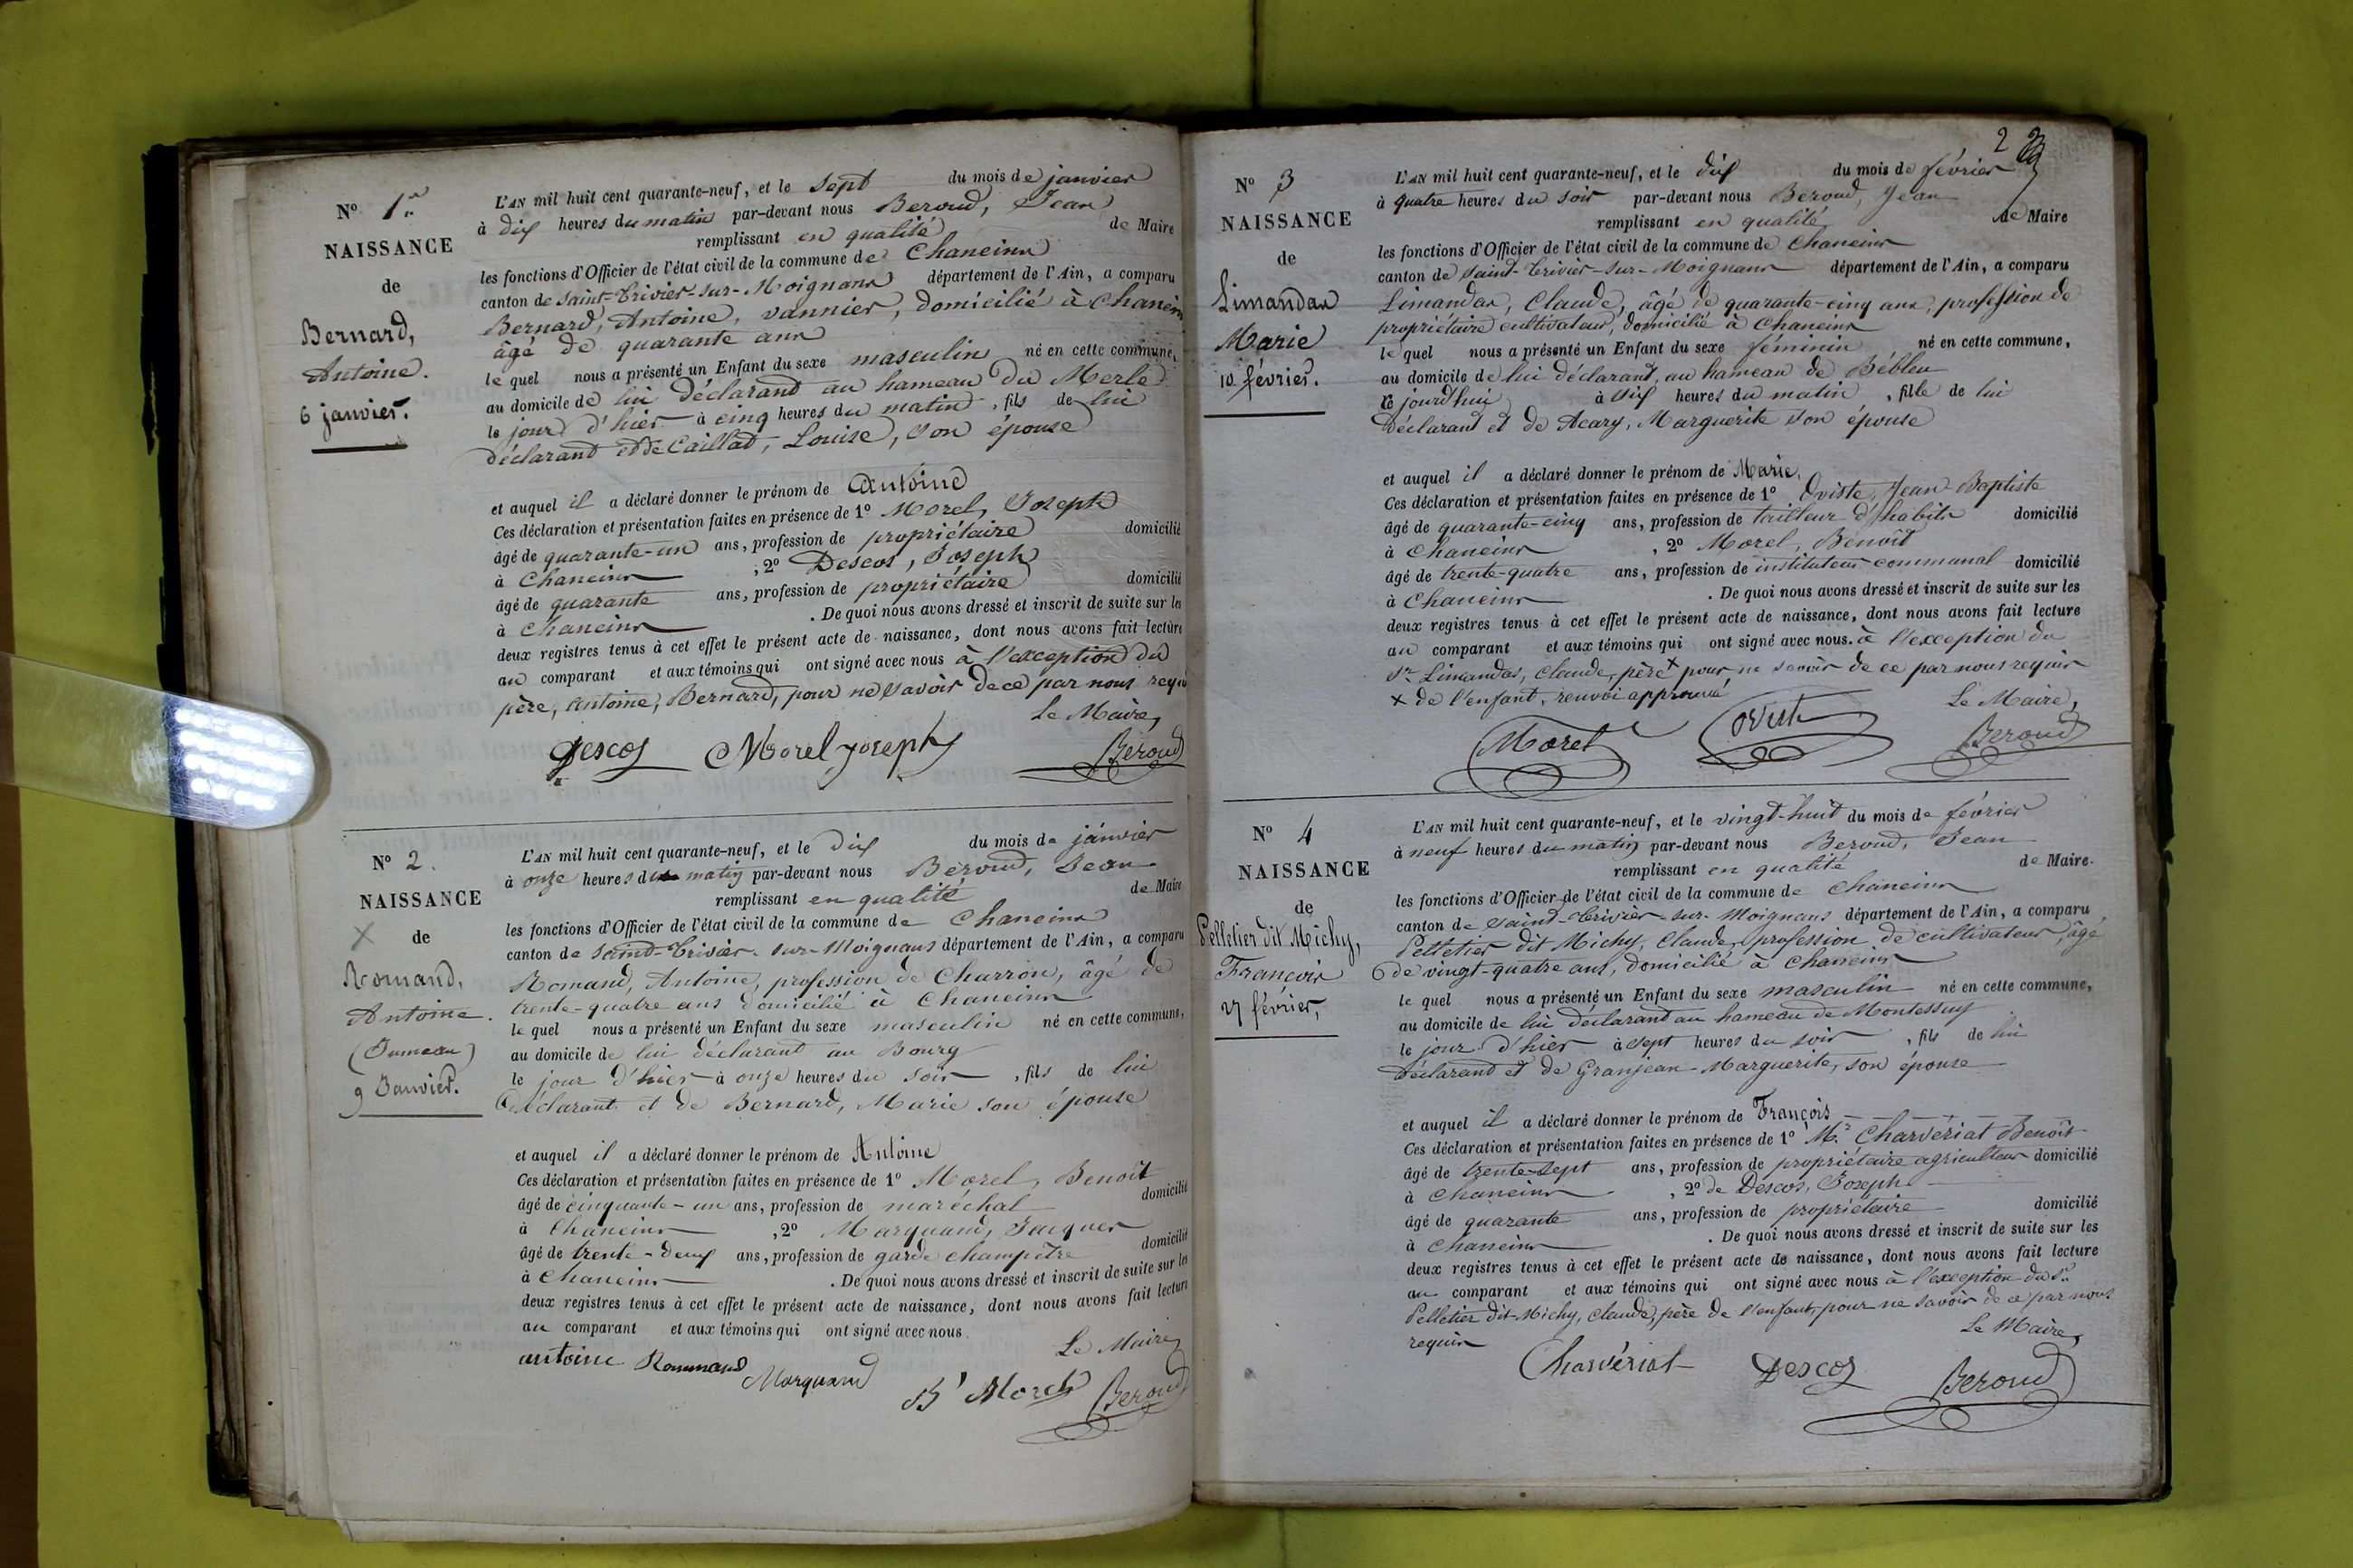 N° 1er
NAISSANCE
de
Bernard,
Antoine.
6 janvier.
L'AN mil huit cent quarante-neuf, et le sept du mois de janvier
à dix heures du matin par-devant nous Beroud, Jean
remplissant en qualité de Maire
les fonctions d'Officier de l'état civil de la commune de Chaneins
canton de saint-Trivier-sur-Moignans département de l'Ain, a comparu
Bernard, Antoine, vannier, domicilié à Chaneins
âgé de quarante ans
le quel nous a présenté un Enfant du sexe masculin né en cette commune,
au domicile de lui déclarant au hameau du Merle
le jour d'hier à cinq heures du matin, fils de lui
déclarant et de Caillat, Louise, son épouse
et auquel il a déclaré donner le prénom de Antoine
Ces déclaration et présentation faites en présence de 1° Morel, Joseph
âgé de quarante-un ans, profession de propriétaire domicilié
à Chaneins , 2° Descos, Joseph
âgé de quarante ans, profession de propriétaire domicilié
à Chaneins . De quoi nous avons dressé et inscrit de suite sur les
deux registres tenus à cet effet le présent acte de naissance, dont nous avons fait lecture
au comparant et aux témoins qui ont signé avec nous à l'exception du
père, Antoine, Bernard, pour ne savoir de ce par nous requis
Le Maire,
Descos Morel joseph Beroud
N° 2.
NAISSANCE
de
Romand,
Antoine.
(Jumeau)
9 Janvier.
L'AN mil huit cent quarante-neuf, et le dix du mois de janvier
à onze heures du matin par-devant nous Beroud, Jean
remplissant en qualité de Maire
les fonctions d'Officier de l'état civil de la commune de Chaneins
canton de saint-Trivier-sur-Moignans département de l'Ain, a comparu
Romand, Antoine, profession de Charron, âgé de
trente-quatre ans domicilié à Chaneins
le quel nous a présenté un Enfant du sexe masculin né en cette commune,
au domicile de lui déclarant au Bourg
le jour d'hier à onze heures du soir , fils de lui
déclarant et de Bernard, Marie son épouse
et auquel il a déclaré donner le prénom de Antoine
Ces déclaration et présentation faites en présence de 1° Morel, Benoît
âgé de cinquante-un ans, profession de maréchal domicilié
à Chaneins , 2° Marquand, Jacques
âgé de trente-deux ans, profession de garde champêtre domicilié
à Chaneins . De quoi nous avons dressé et inscrit de suite sur les
deux registres tenus à cet effet le présent acte de naissance, dont nous avons fait lecture
au comparant et aux témoins qui ont signé avec nous.
Le Maire,
antoine Rommand Marquand Bt Morel Beroud
2
N° 3
NAISSANCE
de
Limandas
Marie
10 février.
L'AN mil huit cent quarante-neuf, et le dix du mois de février
à quatre heures du soir par-devant nous Beroud, Jean
remplissant en qualité de Maire
les fonctions d'Officier de l'état civil de la commune de Chaneins
canton de saint-Trivier-sur-Moignans département de l'Ain, a comparu
Limandas, Claude, âgé de quarante-cinq ans, profession de
propriétaire cultivateur, domicilié à Chaneins
le quel nous a présenté un Enfant du sexe féminin né en cette commune,
au domicile de lui déclarant, au hameau de Bébleu
ce jourd'hui à six heures du matin , fille de lui
déclarant et de Acary, Marguerite son épouse
et auquel il a déclaré donner le prénom de Marie,
Ces déclaration et présentation faites en présence de 1° Oviste, Jean-Baptiste
âgé de quarante-cinq ans, profession de tailleur d'habits domicilié
à Chaneins , 2° Morel, Benoît
âgé de trente-quatre ans, profession de instituteur communal domicilié
à Chaneins . De quoi nous avons dressé et inscrit de suite sur les
deux registres tenus à cet effet le présent acte de naissance, dont nous avons fait lecture
au comparant et aux témoins qui ont signé avec nous. à l'exception du
Sr. Limandas, Claude, père x pour ne savoir de ce par nous requis
x de l'enfant, renvoi approuvé Le Maire,
Morel Oviste Beroud
N° 4
NAISSANCE
de
Pelletier dit Michy,
François
27 février,
L'AN mil huit cent quarante-neuf, et le vingt-huit du mois de février
à neuf heures du matin par-devant nous Beroud, Jean
remplissant en qualité de Maire.
les fonctions d'Officier de l'état civil de la commune de Chaneins
canton de saint-Trivier-sur-Moignans département de l'Ain, a comparu
Pelletier dit Michy, Claude, profession de cultivateur, âgé
de vingt-quatre ans, domicilié à Chaneins
le quel nous a présenté un Enfant du sexe masculin né en cette commune,
au domicile de lui déclarant au hameau de Montessuy
le jour d'hier à sept heures du soir , fils de lui
déclarant et de Granjean-Marguerite, son épouse
et auquel il a déclaré donner le prénom de François
Ces déclaration et présentation faites en présence de 1° Mr. Charvériat Benoît
âgé de trente-sept ans, profession de propriétaire agriculteur domicilié
à Chaneins , 2° de Descos, Joseph
âgé de quarante ans, profession de propriétaire domicilié
à Chaneins . De quoi nous avons dressé et inscrit de suite sur les
deux registres tenus à cet effet le présent acte de naissance, dont nous avons fait lecture
au comparant et aux témoins qui ont signé avec nous à l'exception du Sr.
Pelletier dit Michy, Claude, père de l'enfant, pour ne savoir de ce par nous
requis Le Maire,
Charvériat Descos Beroud